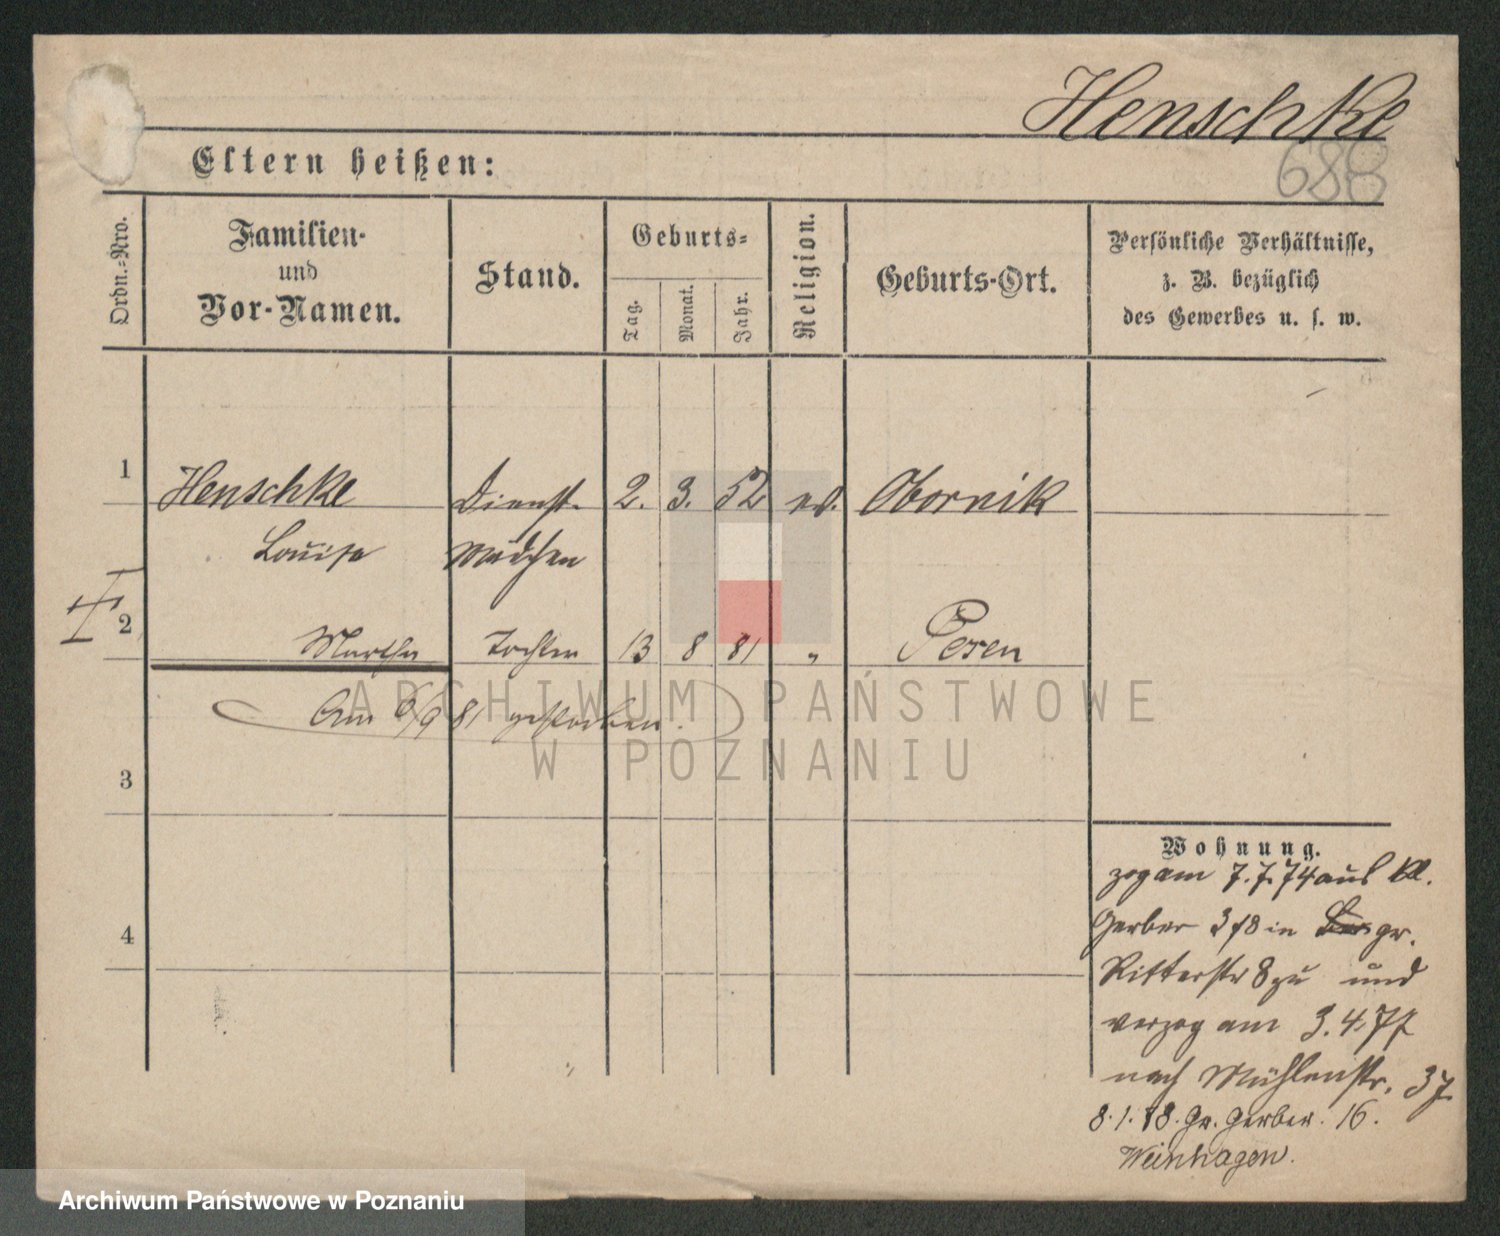 Henschke
688
Eltern heißen:
Ordn.-Nro.
Familien-
und
Vor-Namen.
Stand.
Geburts-
Tag.
Monat.
Jahr.
Religion.
Geburts-Ort.
Persönliche Verhältnisse,
z. B. bezüglich
des Gewerbes u. s. w.
1
Henschke Dienst- 2. 3. 52 ev. Obornik
Louise Mädchen
2
Martha Tochter 13 8 81 " Posen
Am 6/9 81 gestorben.
3
4
Wohnung.
zog am 7.7.74 aus kl.
Gerber 3/8 in gr.
Ritterstr 8 zu und
verzog am 3.4.77
nach Mühlenstr. 37
8.1.78. Gr. Gerber. 16.
Weinhagen.
ARCHIWUM PAŃSTWOWE
W POZNANIU
Archiwum Państwowe w Poznaniu